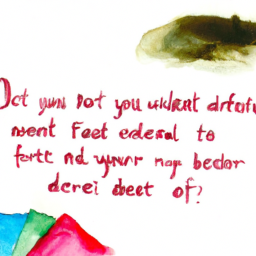 Oct ywn pot you uklart drfotu
nent Feet ederal to
fortt nd ywnr nay bedor
derei deet of?